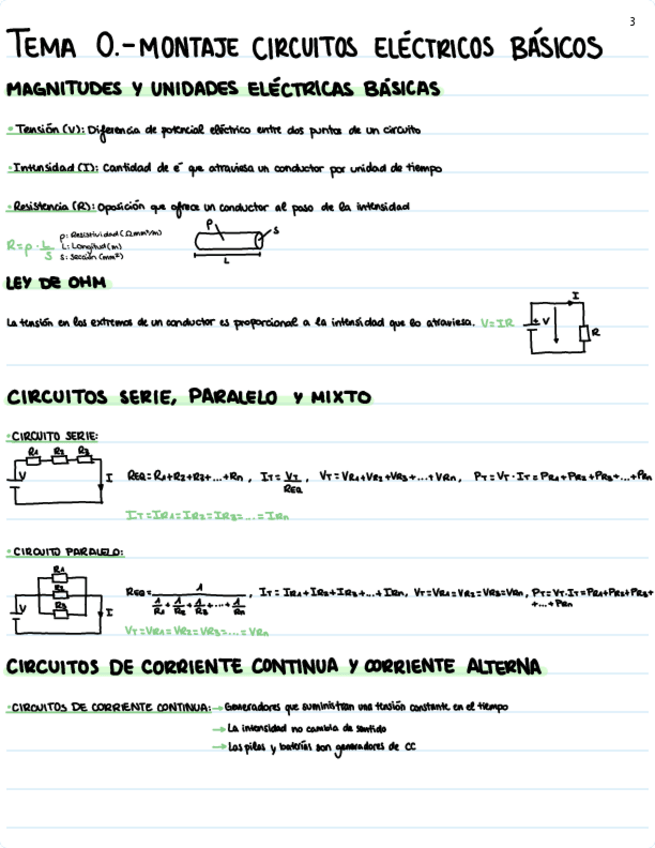 3
TEMA 0.-MONTAJE CIRCUITOS ELÉCTRICOS BÁSICOS
MAGNITUDES Y UNIDADES ELÉCTRICAS BÁSICAS
• Tensión (V): Diferencia de potencial eléctrico entre dos puntos de un circuito
• Intensidad (I): Cantidad de e⁻ que atraviesa un conductor por unidad de tiempo
• Resistencia (R): Oposición que ofrece un conductor al paso de la intensidad
R=ρ·L/S
ρ: Resistividad (Ωmm²/m)
L: Longitud (m)
S: Sección (mm²)
ρ S
L
LEY DE OHM
La tensión en los extremos de un conductor es proporcional a la intensidad que lo atraviesa. V=IR
I
+ V R
CIRCUITOS SERIE, PARALELO Y MIXTO
• CIRCUITO SERIE:
R1 R2 R3
V I
REQ=R1+R2+R3+...+Rn , IT=VT/REQ , VT=VR1+VR2+VR3+...+VRn, PT=VT·IT=PR1+PR2+PR3+...+PRn
IT=IR1=IR2=IR3=...=IRn
• CIRCUITO PARALELO:
R1
R2
R3
V I
REQ=1/(1/R1+1/R2+1/R3+...+1/Rn) , IT=IR1+IR2+IR3+...+IRn, VT=VR1=VR2=VR3=VRn, PT=VT·IT=PR1+PR2+PR3+
+...+PRn
VT=VR1=VR2=VR3=...=VRn
CIRCUITOS DE CORRIENTE CONTINUA Y CORRIENTE ALTERNA
• CIRCUITOS DE CORRIENTE CONTINUA: → Generadores que suministran una tensión constante en el tiempo
→ La intensidad no cambia de sentido
→ Las pilas y baterías son generadores de CC